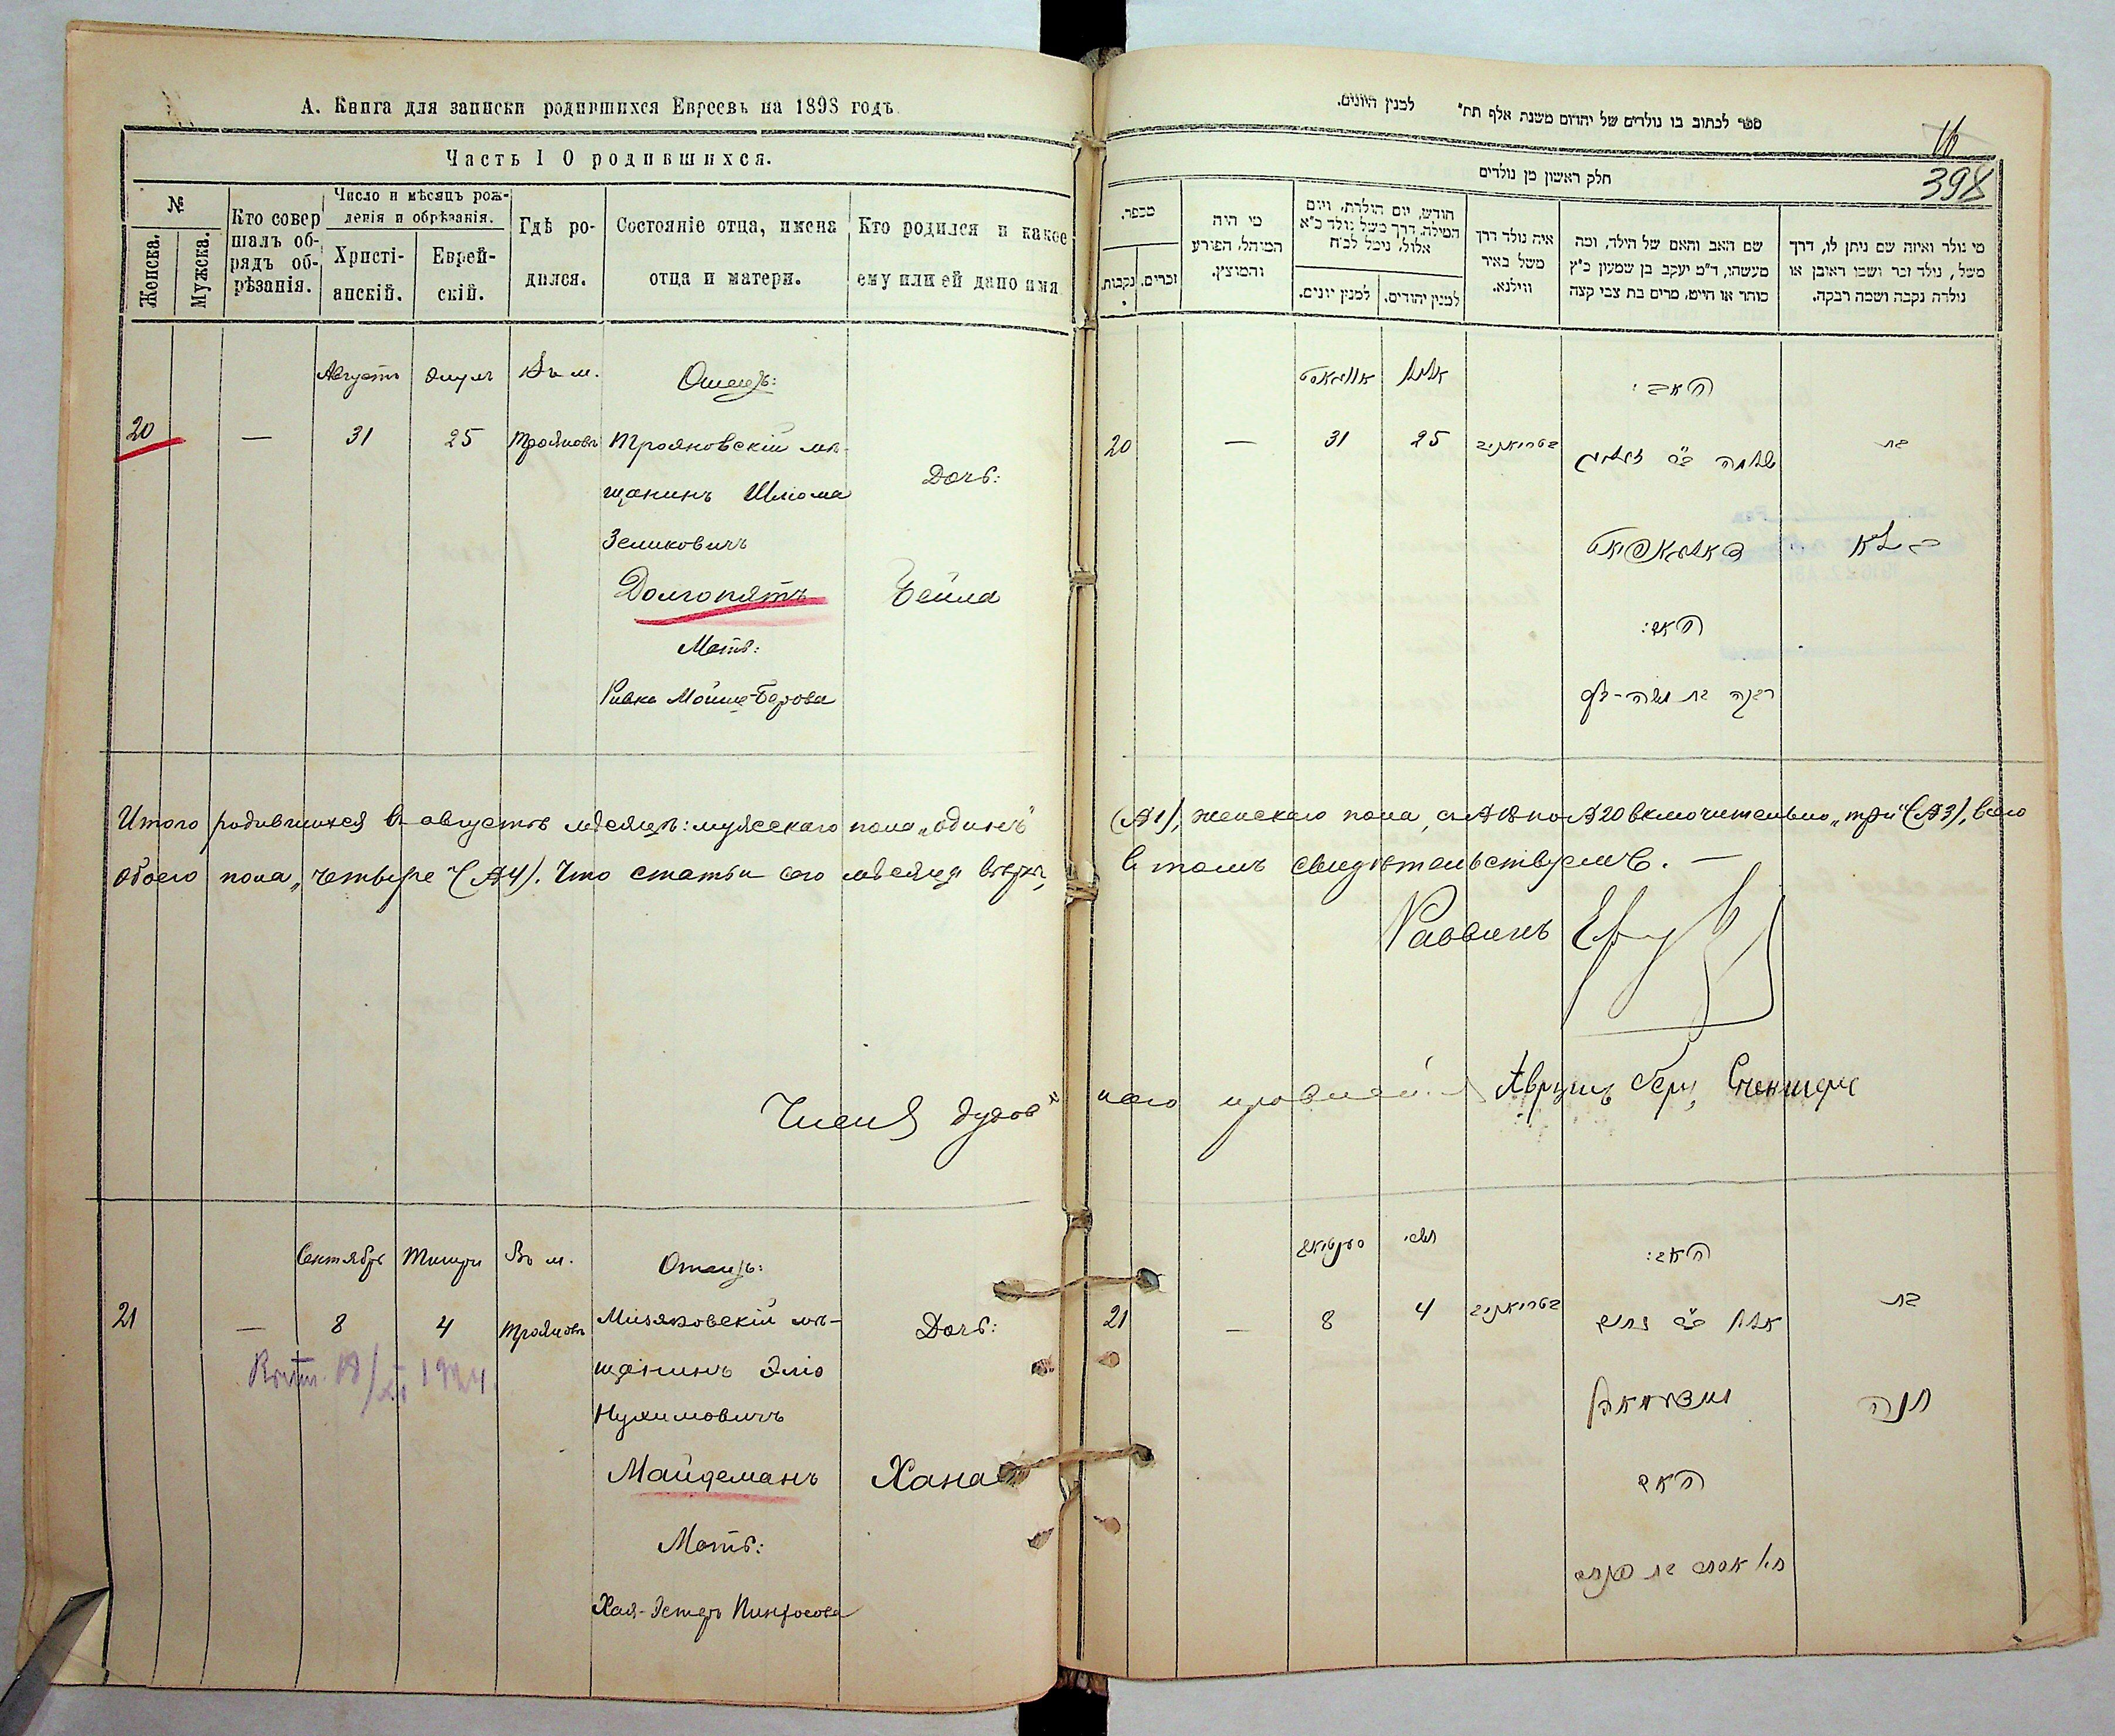 А. Книга для записки родившихся Евреевъ на 1898 годъ
Часть I О родившихся.
№
Женска.
Мужска.
Кто совер
шалъ об-
рядъ об-
рѣзанія.
Число и мѣсяцъ рож-
денія и обрѣзанія.
Христі-
анскій.
Еврей-
скій.
Гдѣ ро-
дился.
Состояніе отца, имена
отца и матери.
Кто родился и какое
ему или ей дано имя
20
—
Августъ
31
Элулъ
25
Въ м.
Трояновъ
Отецъ:
Трояновскій мѣ-
щанинъ Шлiома
Зеликовичъ
Долгопятъ
Мать:
Ривка Мойше-Берова
Дочь:
Бейла
Итого родившихся въ августѣ мѣсяцѣ: мужескаго пола „одинъ"
обоего пола „четыре" (№4). Что статьи сего мѣсяца вѣрны,
Членъ духов
21
—
Сентябрь
8
Тишри
4
Въ м.
Трояновъ
1924.
Отецъ:
мѣ-
щанинъ Эліо
Нухимовичъ
Майдеманъ
Мать:
Хая-Эстеръ Пинхосова
Дочь:
Хана
ספר לכתוב בו נולדים של יהודים משנת אלף תת״ לבנין היונים.
16
398
חלק ראשון מן נולדים
מספר.
נקבות.
זכרים.
מי היה
המוהל, הפורע
והמוצץ.
חודש, יום הולדת, ויום
המילה, דרך משל נולד כ״א
אלול, נימל לכ״ח
למנין יונים.
למנין יהודים.
איה נולד דרך
משל באיר
ווילנא.
שם האב והאם של הילד, ומה
מעשהו, ד״מ יעקב בן שמעון כ״ץ
סוחר או חייט, מרים בת צבי קצה
מי נולד ואיזה שם ניתן לו, דרך
משל, נולד זכר ושמו ראובן או
נולדה נקבה ושמה רבקה.
20
—
אווגוסט
31
אלול
25
האב:
שלמה
האם:
רבקה בת משה-בער
בת
ביילא
(№1), женскаго пола, съ №18 по №20 включительно „три" (№3), всего
въ томъ свидѣтельствуемъ. —
Раввинъ
наго правлені
21
—
8
תשרי
4
האב:
האם
בת
חנה